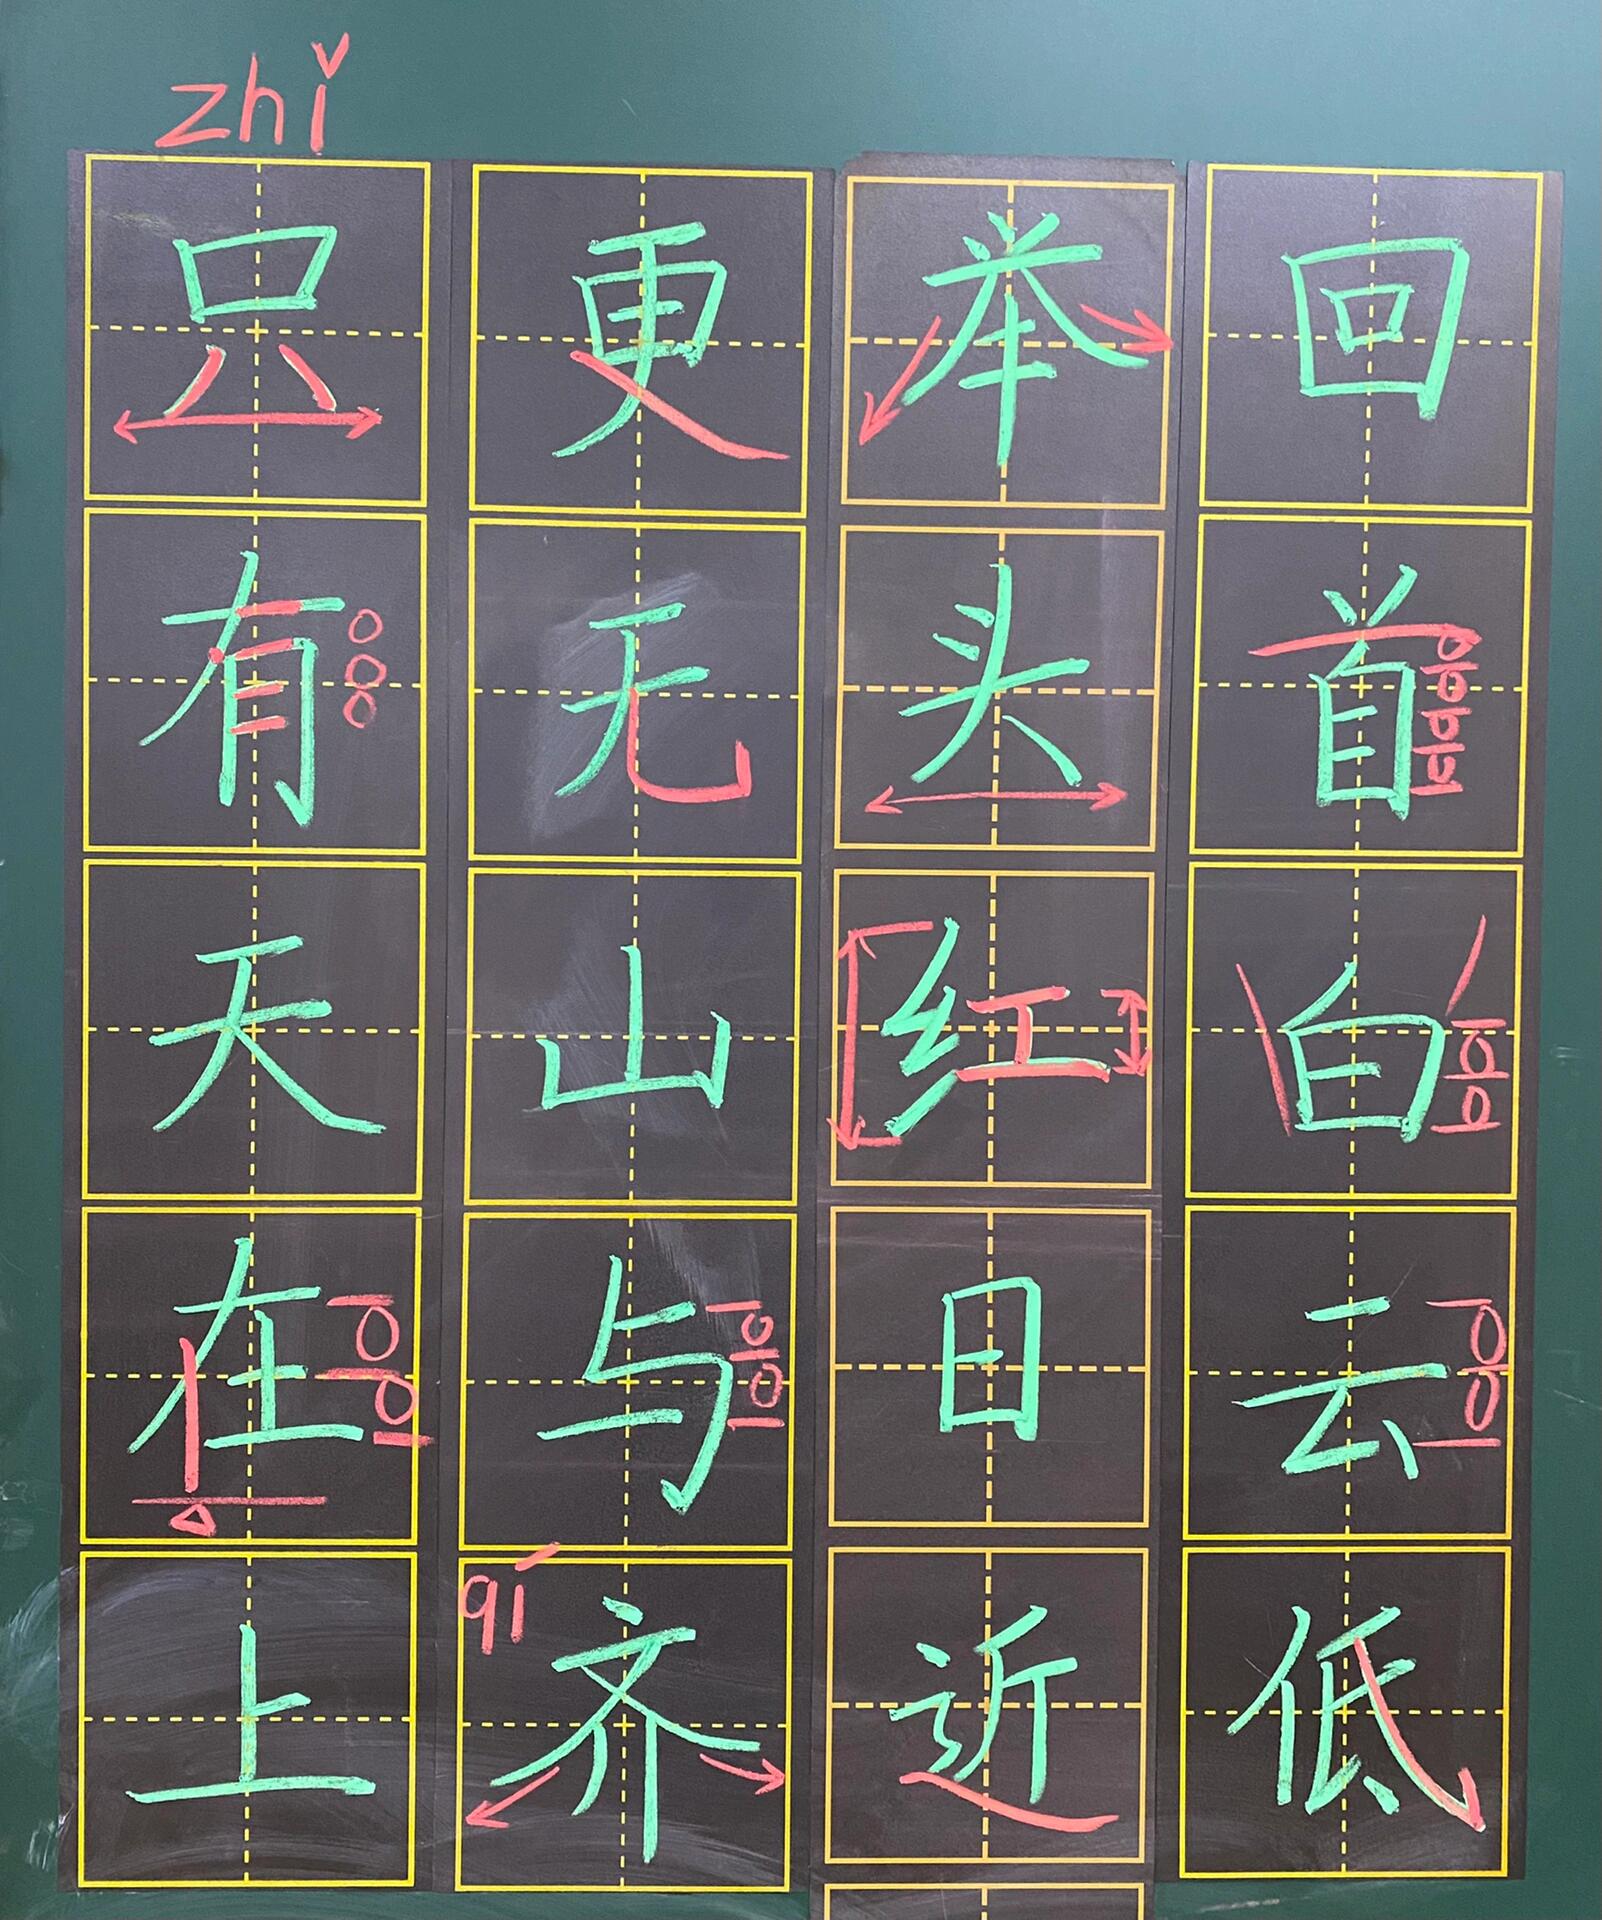 zhǐ
只有天在上
更无山与齐
qí
举头红日近
回首白云低